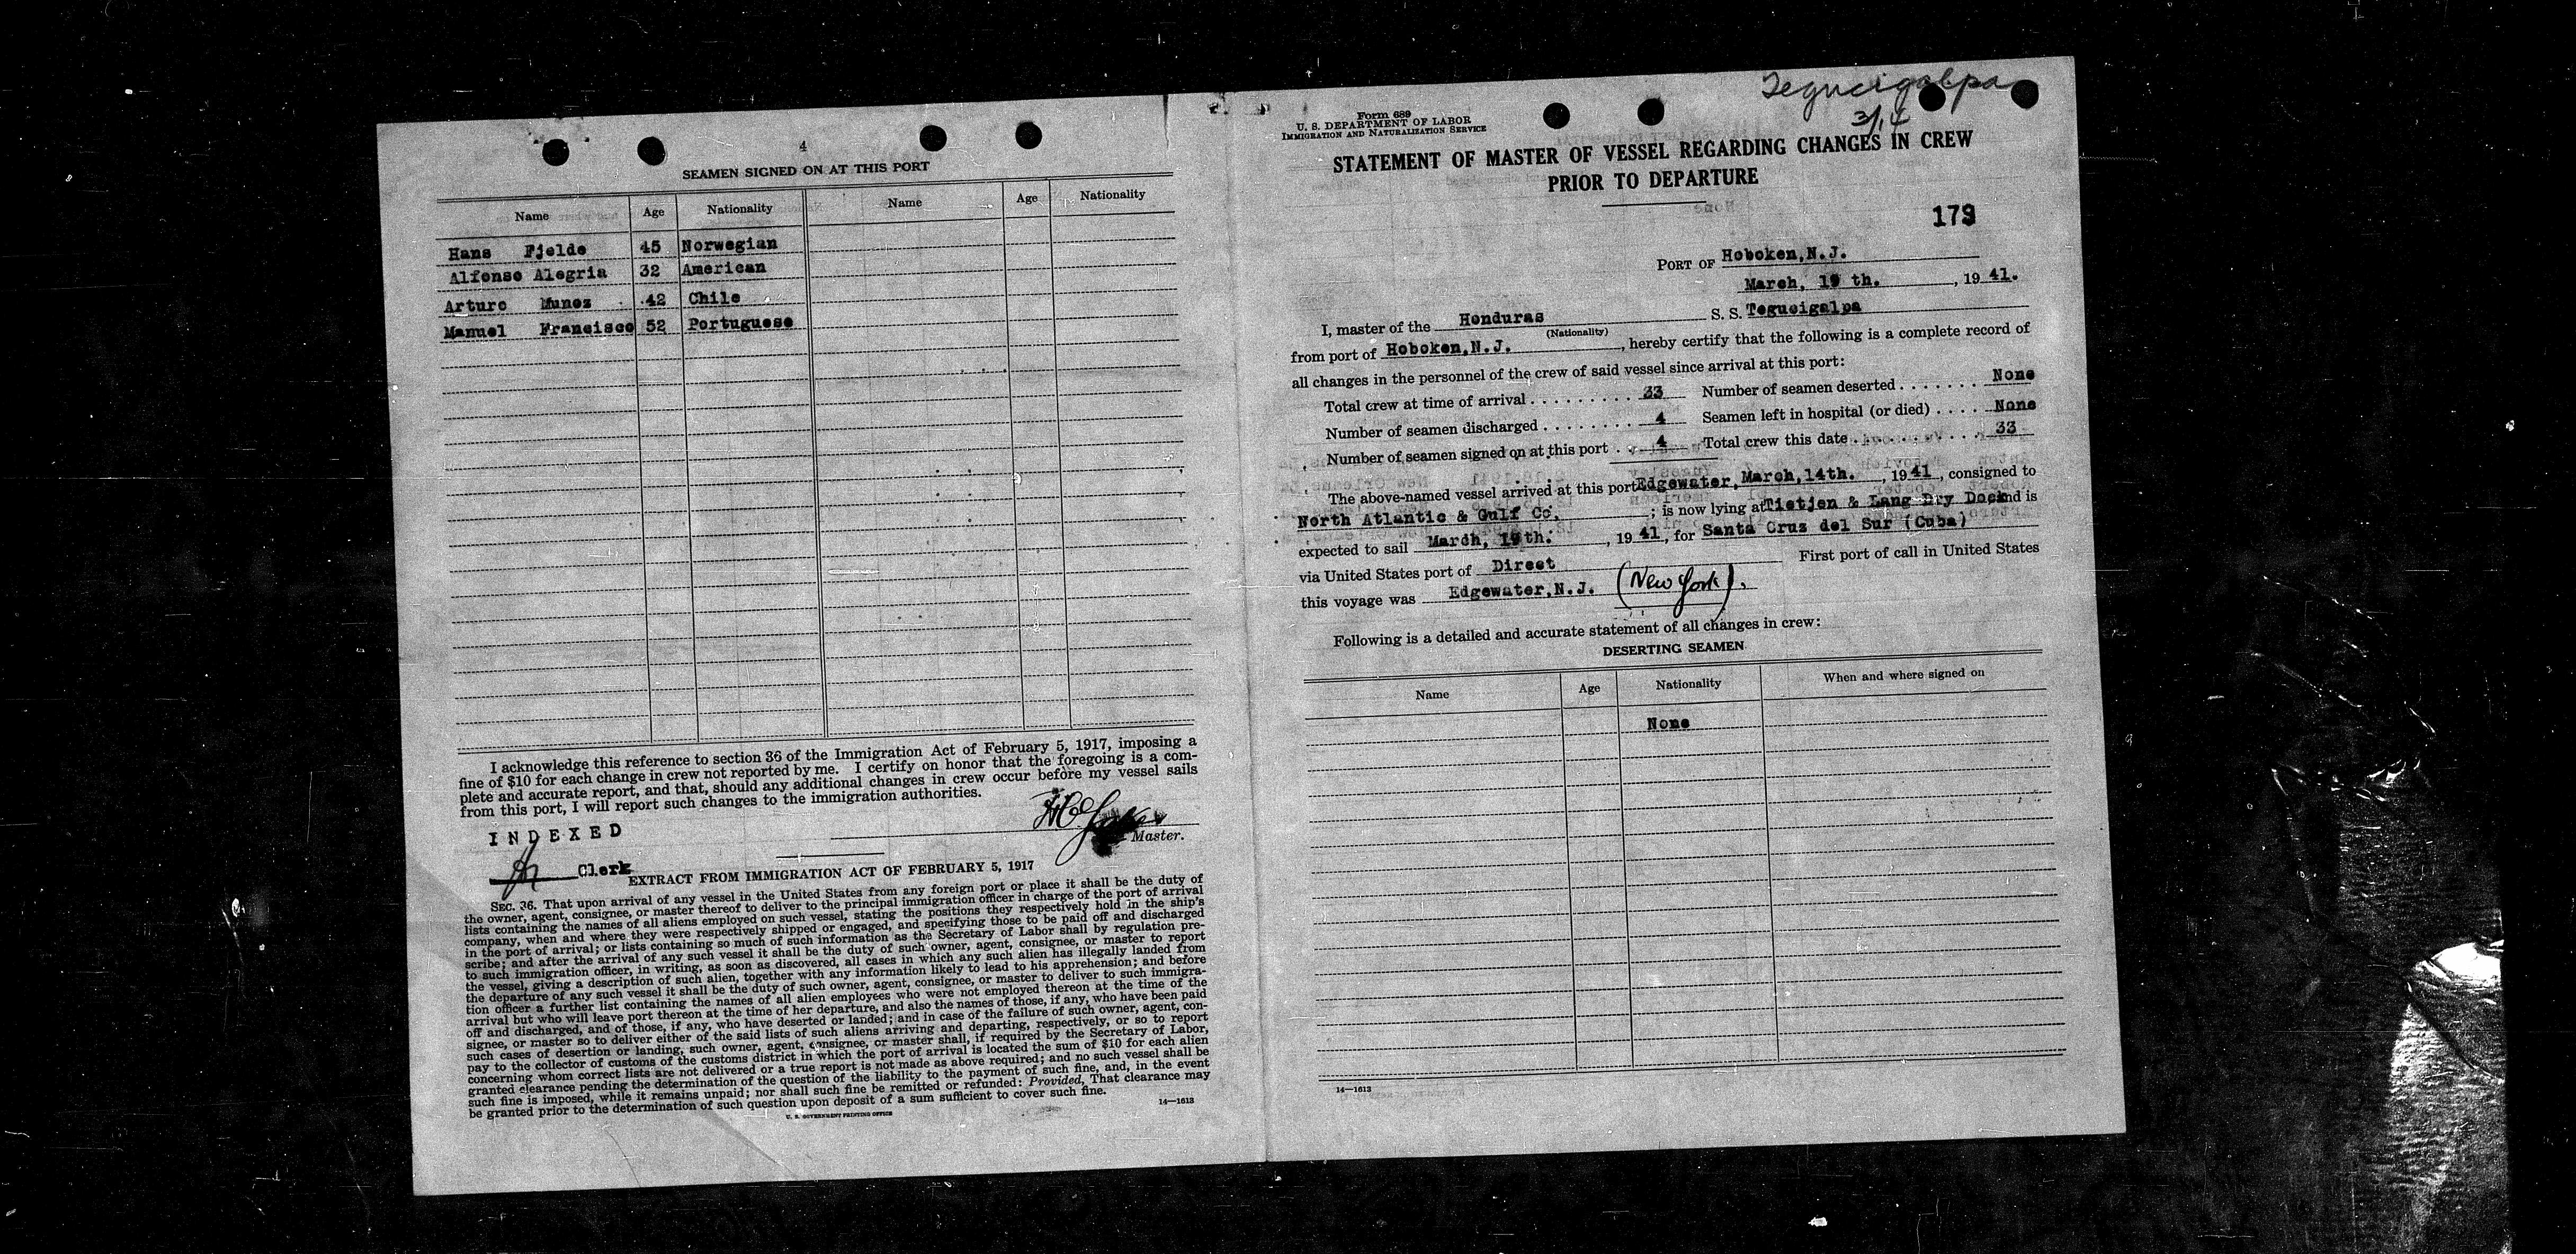 4
SEAMEN SIGNED ON AT THIS PORT
Name Age Nationality Name Age Nationality
Hans Fjelde 45 Norwegian
Alfonso Alegria 32 American
Arturo Munoz 42 Chile
Manuel Francisco 52 Portuguese
I acknowledge this reference to section 36 of the Immigration Act of February 5, 1917, imposing a
fine of $10 for each change in crew not reported by me. I certify on honor that the foregoing is a com-
plete and accurate report, and that, should any additional changes in crew occur before my vessel sails
from this port, I will report such changes to the immigration authorities.
INDEXED
Master.
Clerk
EXTRACT FROM IMMIGRATION ACT OF FEBRUARY 5, 1917
SEC. 36. That upon arrival of any vessel in the United States from any foreign port or place it shall be the duty of
the owner, agent, consignee, or master thereof to deliver to the principal immigration officer in charge of the port of arrival
lists containing the names of all aliens employed on such vessel, stating the positions they respectively hold in the ship's
company, when and where they were respectively shipped or engaged, and specifying those to be paid off and discharged
in the port of arrival; or lists containing so much of such information as the Secretary of Labor shall by regulation pre-
scribe; and after the arrival of any such vessel it shall be the duty of such owner, agent, consignee, or master to report
to such immigration officer, in writing, as soon as discovered, all cases in which any such alien has illegally landed from
the vessel, giving a description of such alien, together with any information likely to lead to his apprehension; and before
the departure of any such vessel it shall be the duty of such owner, agent, consignee, or master to deliver to such immigra-
tion officer a further list containing the names of all alien employees who were not employed thereon at the time of the
arrival but who will leave port thereon at the time of her departure, and also the names of those, if any, who have been paid
off and discharged, and of those, if any, who have deserted or landed; and in case of the failure of such owner, agent, con-
signee, or master so to deliver either of the said lists of such aliens arriving and departing, respectively, or so to report
such cases of desertion or landing, such owner, agent, consignee, or master shall, if required by the Secretary of Labor,
pay to the collector of customs of the customs district in which the port of arrival is located the sum of $10 for each alien
concerning whom correct lists are not delivered or a true report is not made as above required; and no such vessel shall be
granted clearance pending the determination of the question of the liability to the payment of such fine, and, in the event
such fine is imposed, while it remains unpaid; nor shall such fine be remitted or refunded: Provided, That clearance may
be granted prior to the determination of such question upon deposit of a sum sufficient to cover such fine.
U. S. GOVERNMENT PRINTING OFFICE 14—1613
Tegucigalpa
3/14
Form 689
U. S. DEPARTMENT OF LABOR
IMMIGRATION AND NATURALIZATION SERVICE
STATEMENT OF MASTER OF VESSEL REGARDING CHANGES IN CREW
PRIOR TO DEPARTURE
179
PORT OF Hoboken,N.J.
March, 19 th. , 19 41.
I, master of the Honduras S. S. Tegucigalpa
(Nationality)
from port of Hoboken,N.J. , hereby certify that the following is a complete record of
all changes in the personnel of the crew of said vessel since arrival at this port:
Total crew at time of arrival . . . . . . . . . 33 Number of seamen deserted . . . . . . . None
Number of seamen discharged . . . . . . . . 4 Seamen left in hospital (or died) . . . . None
Number of seamen signed on at this port . . 4 Total crew this date . . . . . . . . . . . 33
The above-named vessel arrived at this port Edgewater, March,14th. , 19 41 , consigned to
North Atlantic & Gulf Co. ; is now lying at Tietjen & Lang Dry Dock and is
expected to sail March, 19th. , 19 41 , for Santa Cruz del Sur (Cuba)
via United States port of Direct First port of call in United States
this voyage was Edgewater,N.J. (New York).
Following is a detailed and accurate statement of all changes in crew:
DESERTING SEAMEN
Name Age Nationality When and where signed on
None
14—1613